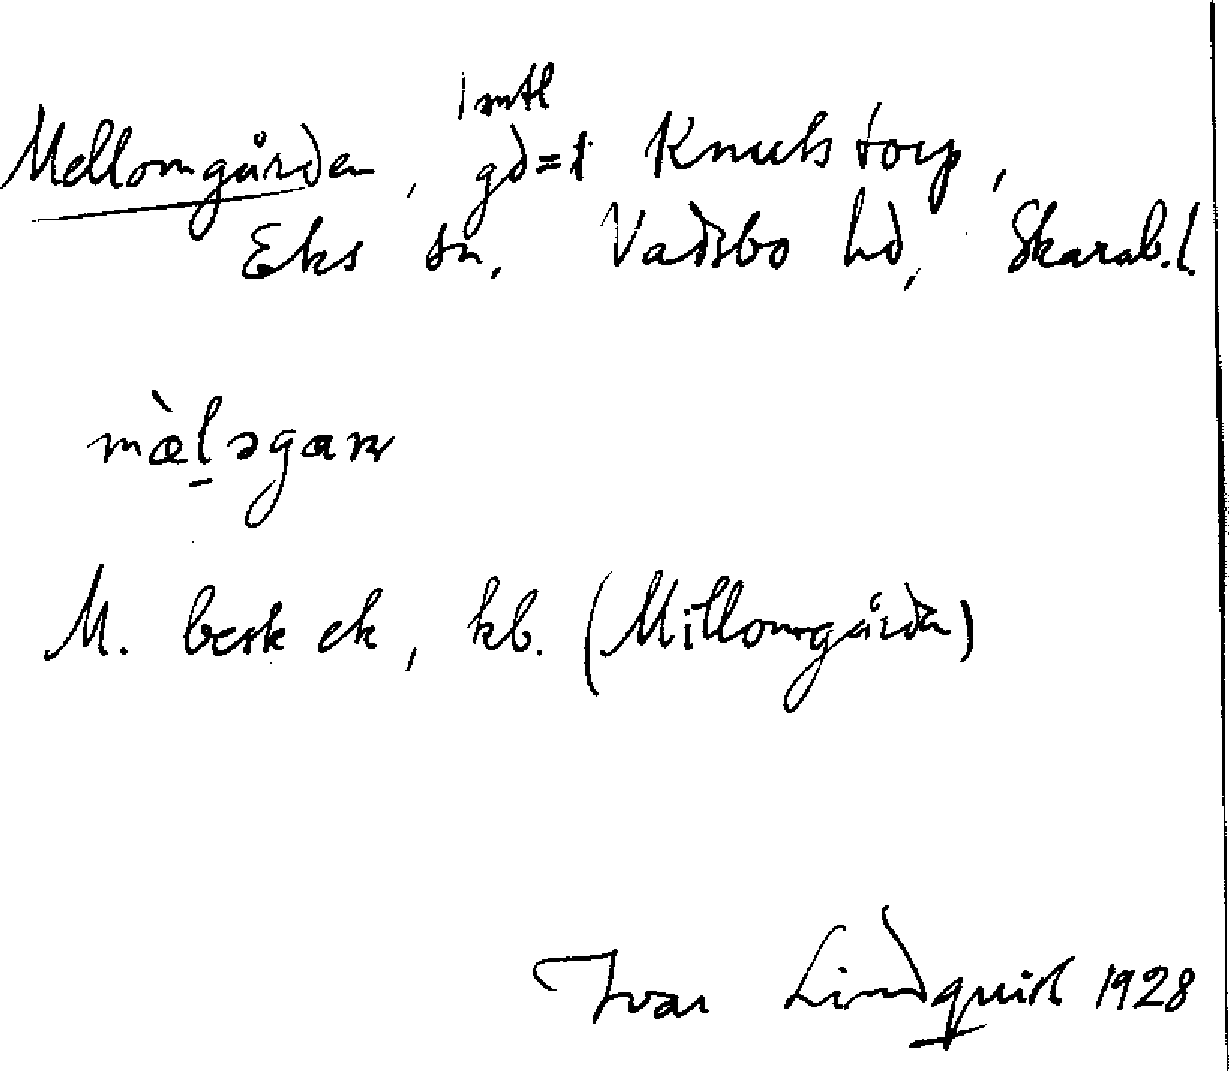 1 mtl
Mellomgården, gd=1 Knutstorp,
Eks sn, Vadsbo hd, Skarab. l.
mæ̀l̠əgaɳ
M. besk ek, kb. (Mellomgården)
Ivar Lindquist 1928